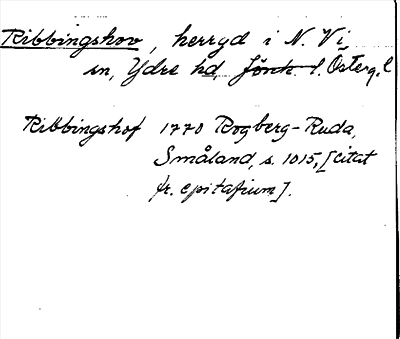 Ribbingshov, herrgd i N. Vi
sn, Ydre hd, Jönk. l. Österg. l
Ribbingshof 1770 Rogberg-Ruda,
Småland, s. 1015, [citat
fr. epitafium].